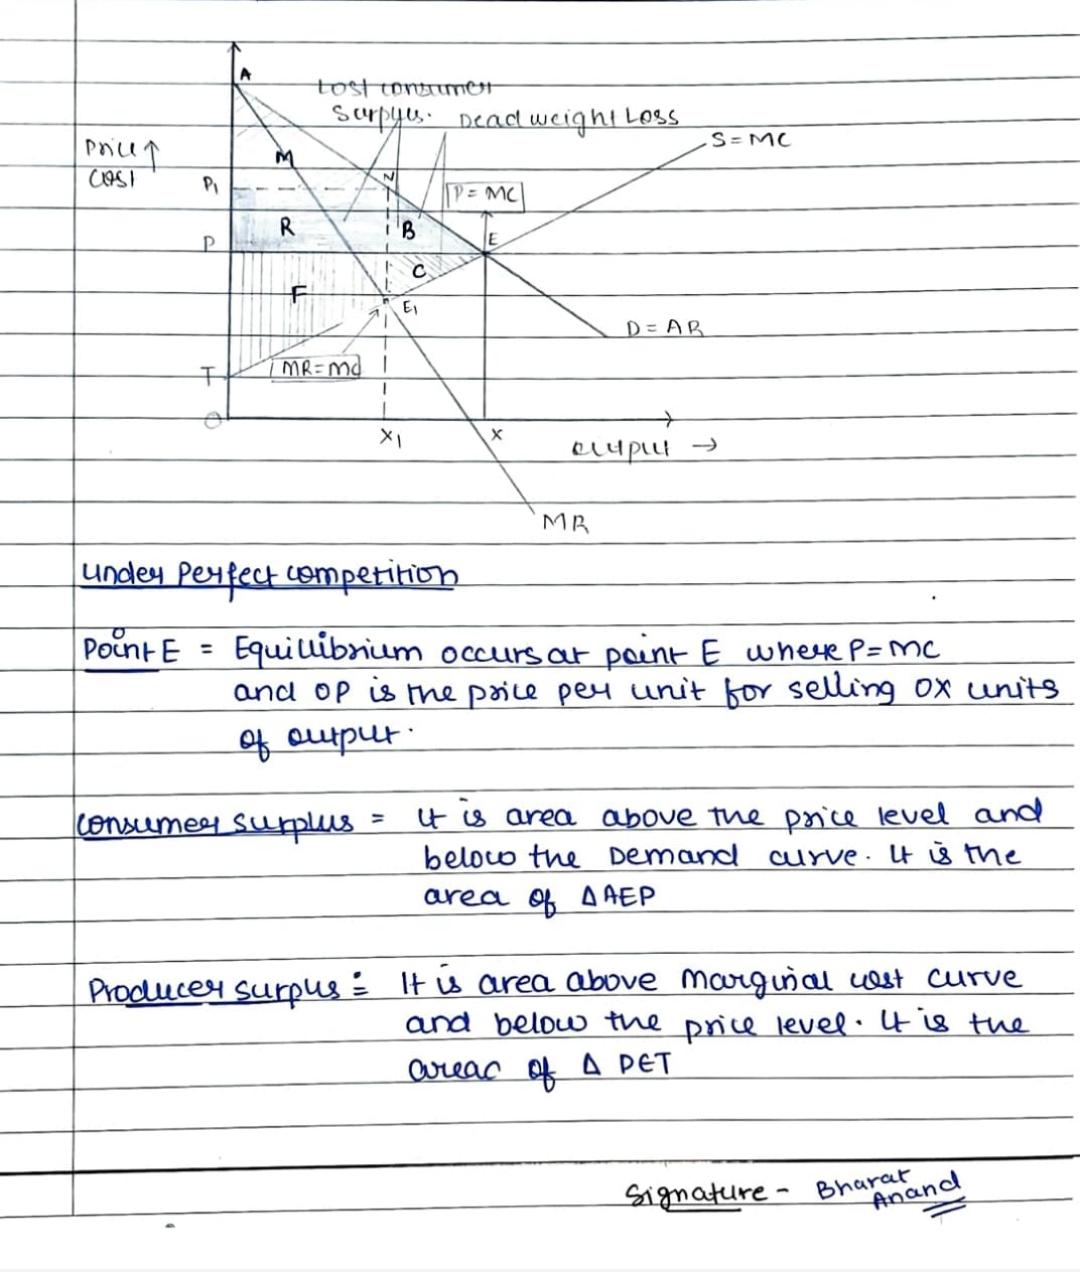 A
Lost consumer
Surplus. Deadweight Loss
S=MC
Price ↑
cost
M
P₁
N
P = MC
R
B
P
E
C
F
E₁
D = AR
T
MR=MC
O
X₁
X
output →
MR
under perfect competition
Point E = Equilibrium occurs at point E where P=MC
and OP is the price per unit for selling OX units
of output.
consumer surplus = It is area above the price level and
below the Demand curve. It is the
area of Δ AEP
Producer surpus = It is area above Marginal cost curve
and below the price level. It is the
area of Δ PET
Signature - Bharat
Anand